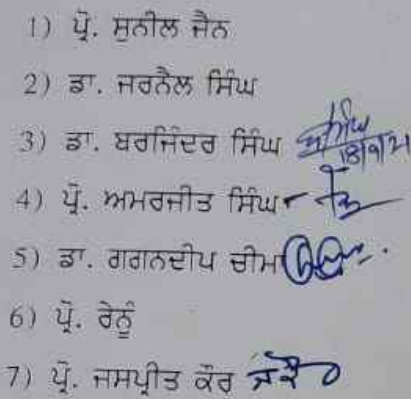 1) ਪ੍ਰੋ. ਸੁਨੀਲ ਜੈਨ
2) ਡਾ. ਜਰਨੈਲ ਸਿੰਘ
3) ਡਾ. ਬਰਜਿੰਦਰ ਸਿੰਘ 18/9/21
4) ਪ੍ਰੋ. ਅਮਰਜੀਤ ਸਿੰਘ
5) ਡਾ. ਗਗਨਦੀਪ ਚੀਮਾ
6) ਪ੍ਰੋ. ਰੇਨੂੰ
7) ਪ੍ਰੋ. ਜਸਪ੍ਰੀਤ ਕੌਰ